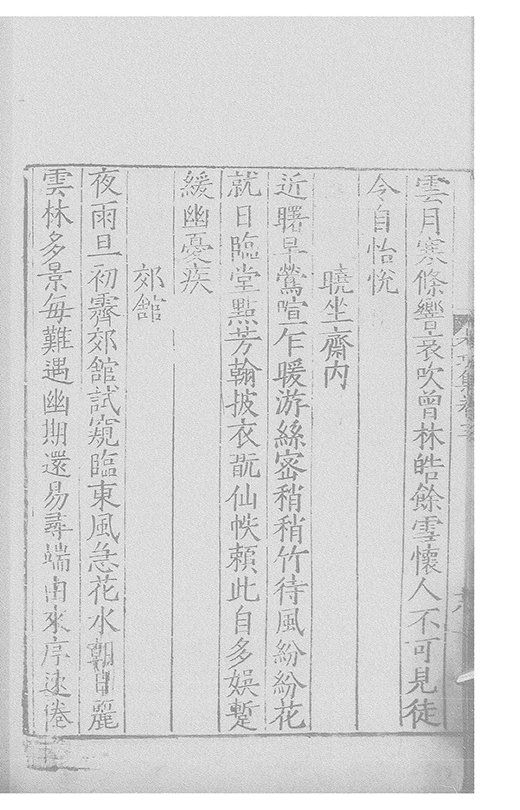 雲月寒條響哀吹曾林皓餘雪懷人不可見徒
令自怡悅
曉坐齋內
近曙早鶯喧乍暖游絲密稍稍竹待風紛紛花
就日臨堂點芳翰披衣翫仙帙賴此自多娛蹔
緩幽憂疾
郊館
夜雨旦初霽郊館試窺臨東風急花水朝日麗
雲林多景每難遇幽期還易尋端由來序速倦